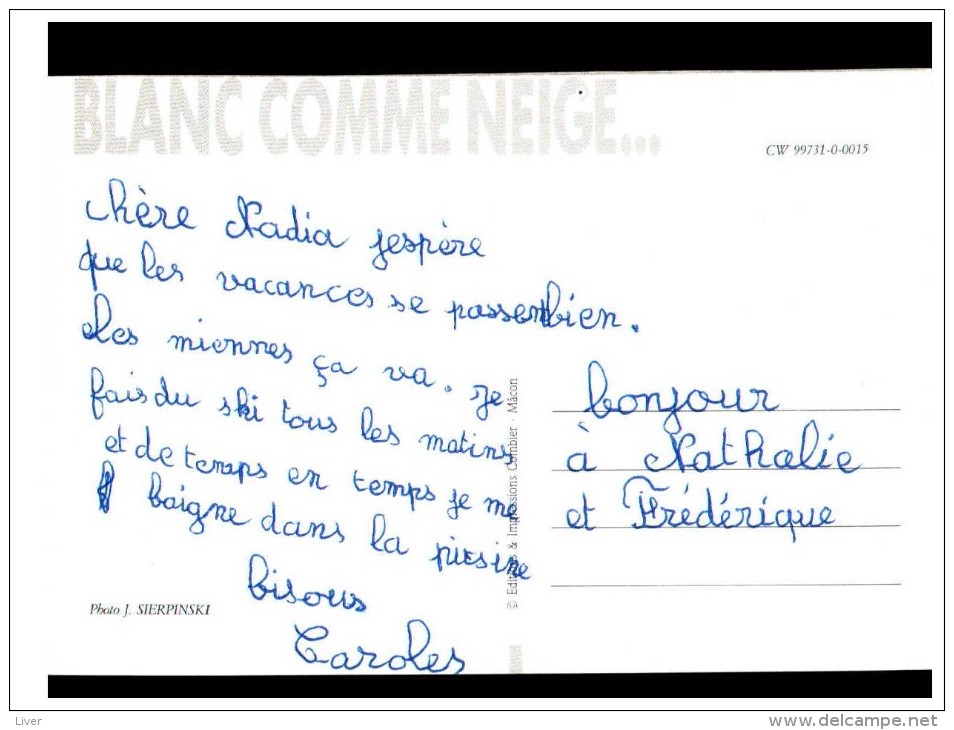 BLANC COMME NEIGE...
CW 99731-0-0015
chère Nadia jespère
que les vacances se passent bien.
les miennes ça va. Je
fais du ski tous les matins
et de temps en temps je me
baigne dans la picsine
bisous
Caroles
bonjour
à Nathalie
et Frédérique
Photo J. SIERPINSKI
© Editions & Impressions Combier - Mâcon
Liver
www.delcampe.net